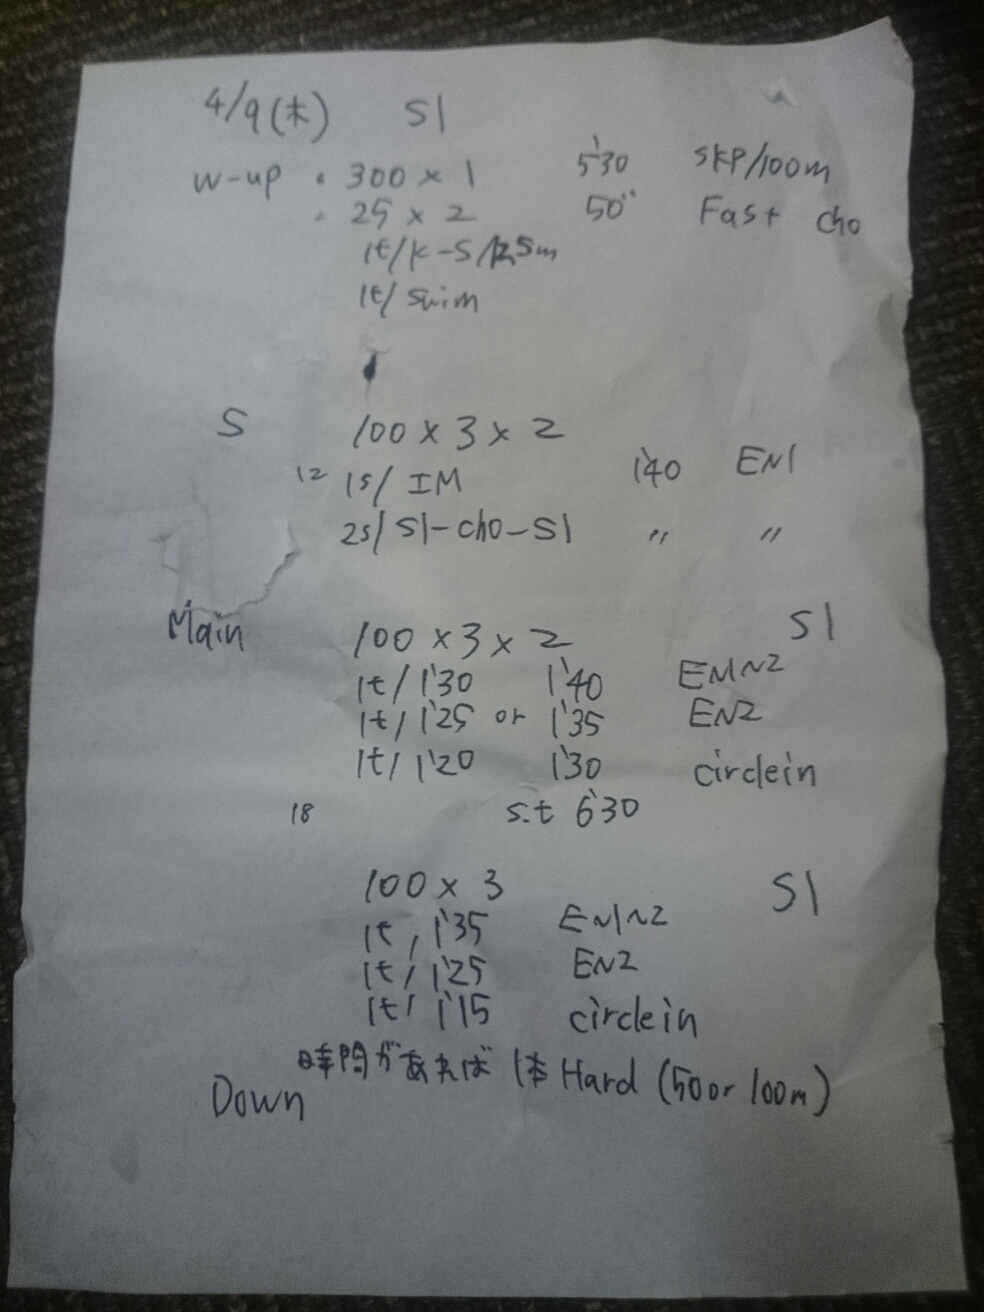 4/9(木) S1
W-up ・300 × 1 5'30 SKP/100m
・25 × 2 50" Fast cho
1t/K-S/12.5m
1t/ swim
S 100 × 3 × 2
12 1s/ IM 1'40 EN1
2s/ S1-cho-S1 〃 〃
Main 100 × 3 × 2 S1
1t/1'30 1'40 EN1~2
1t/1'25 or 1'35 EN2
1t/1'20 1'30 circlein
18 s.t 6'30
100 × 3 S1
1t/1'35 EN1~2
1t/1'25 EN2
1t/1'15 circlein
時間があれば 1本 Hard (50 or 100m)
Down